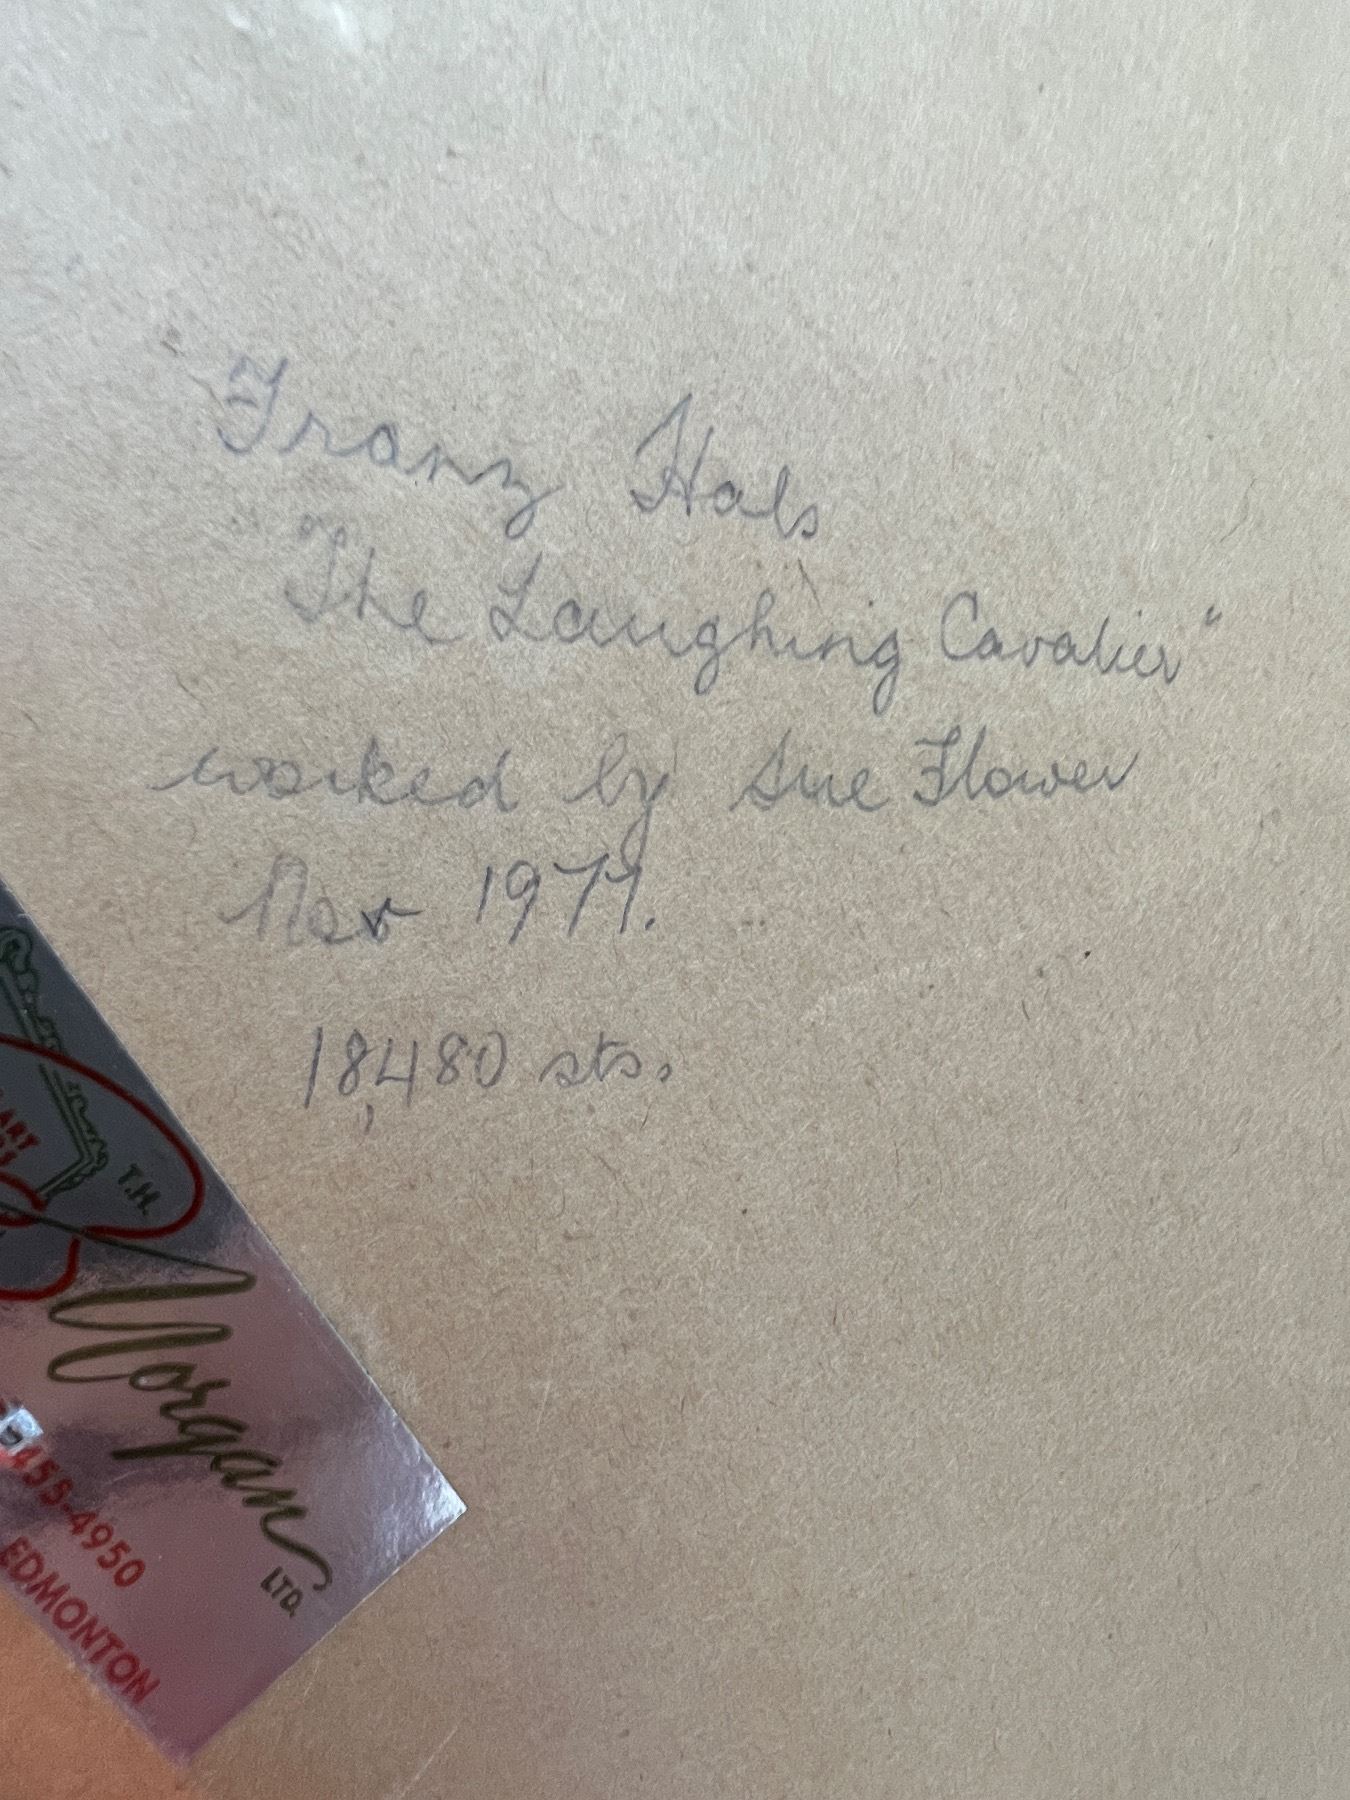 Franz Hals
"The Laughing Cavalier"
worked by Sue Flower
Nov 1977.
18,480 sts.
ART
T.H.
Morgan
LTD.
455-4950
EDMONTON